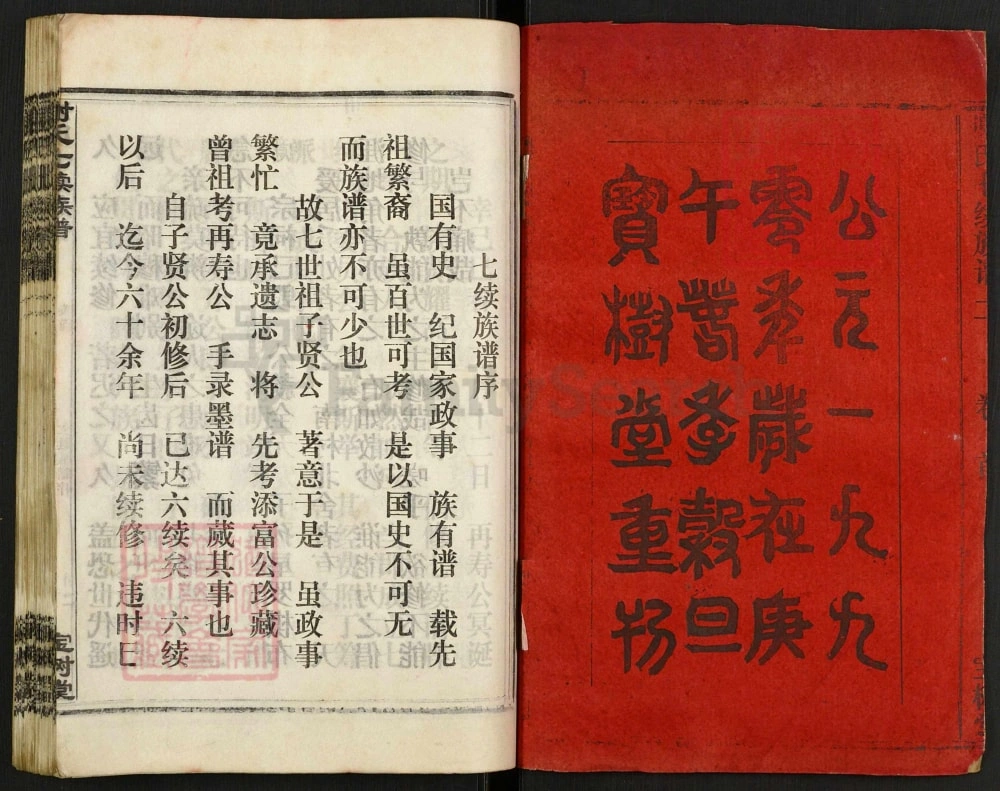 公元一九九
零年歲在庚
午嘗孝穀旦
寶樹堂重刊
七续族谱序
国有史 纪国家政事 族有谱 载先
祖繁裔 虽百世可考 是以国史不可无
而族谱亦不可少也
故七世祖子贤公 著意于是 虽政事
繁忙 竟承遗志 将 先考添富公珍藏
曾祖考再寿公 手录墨谱 而蒇其事也
自子贤公初修后 已达六续矣 六续
以后 迄今六十余年 尚未续修 违时已
谢氏七续族谱
宝树堂